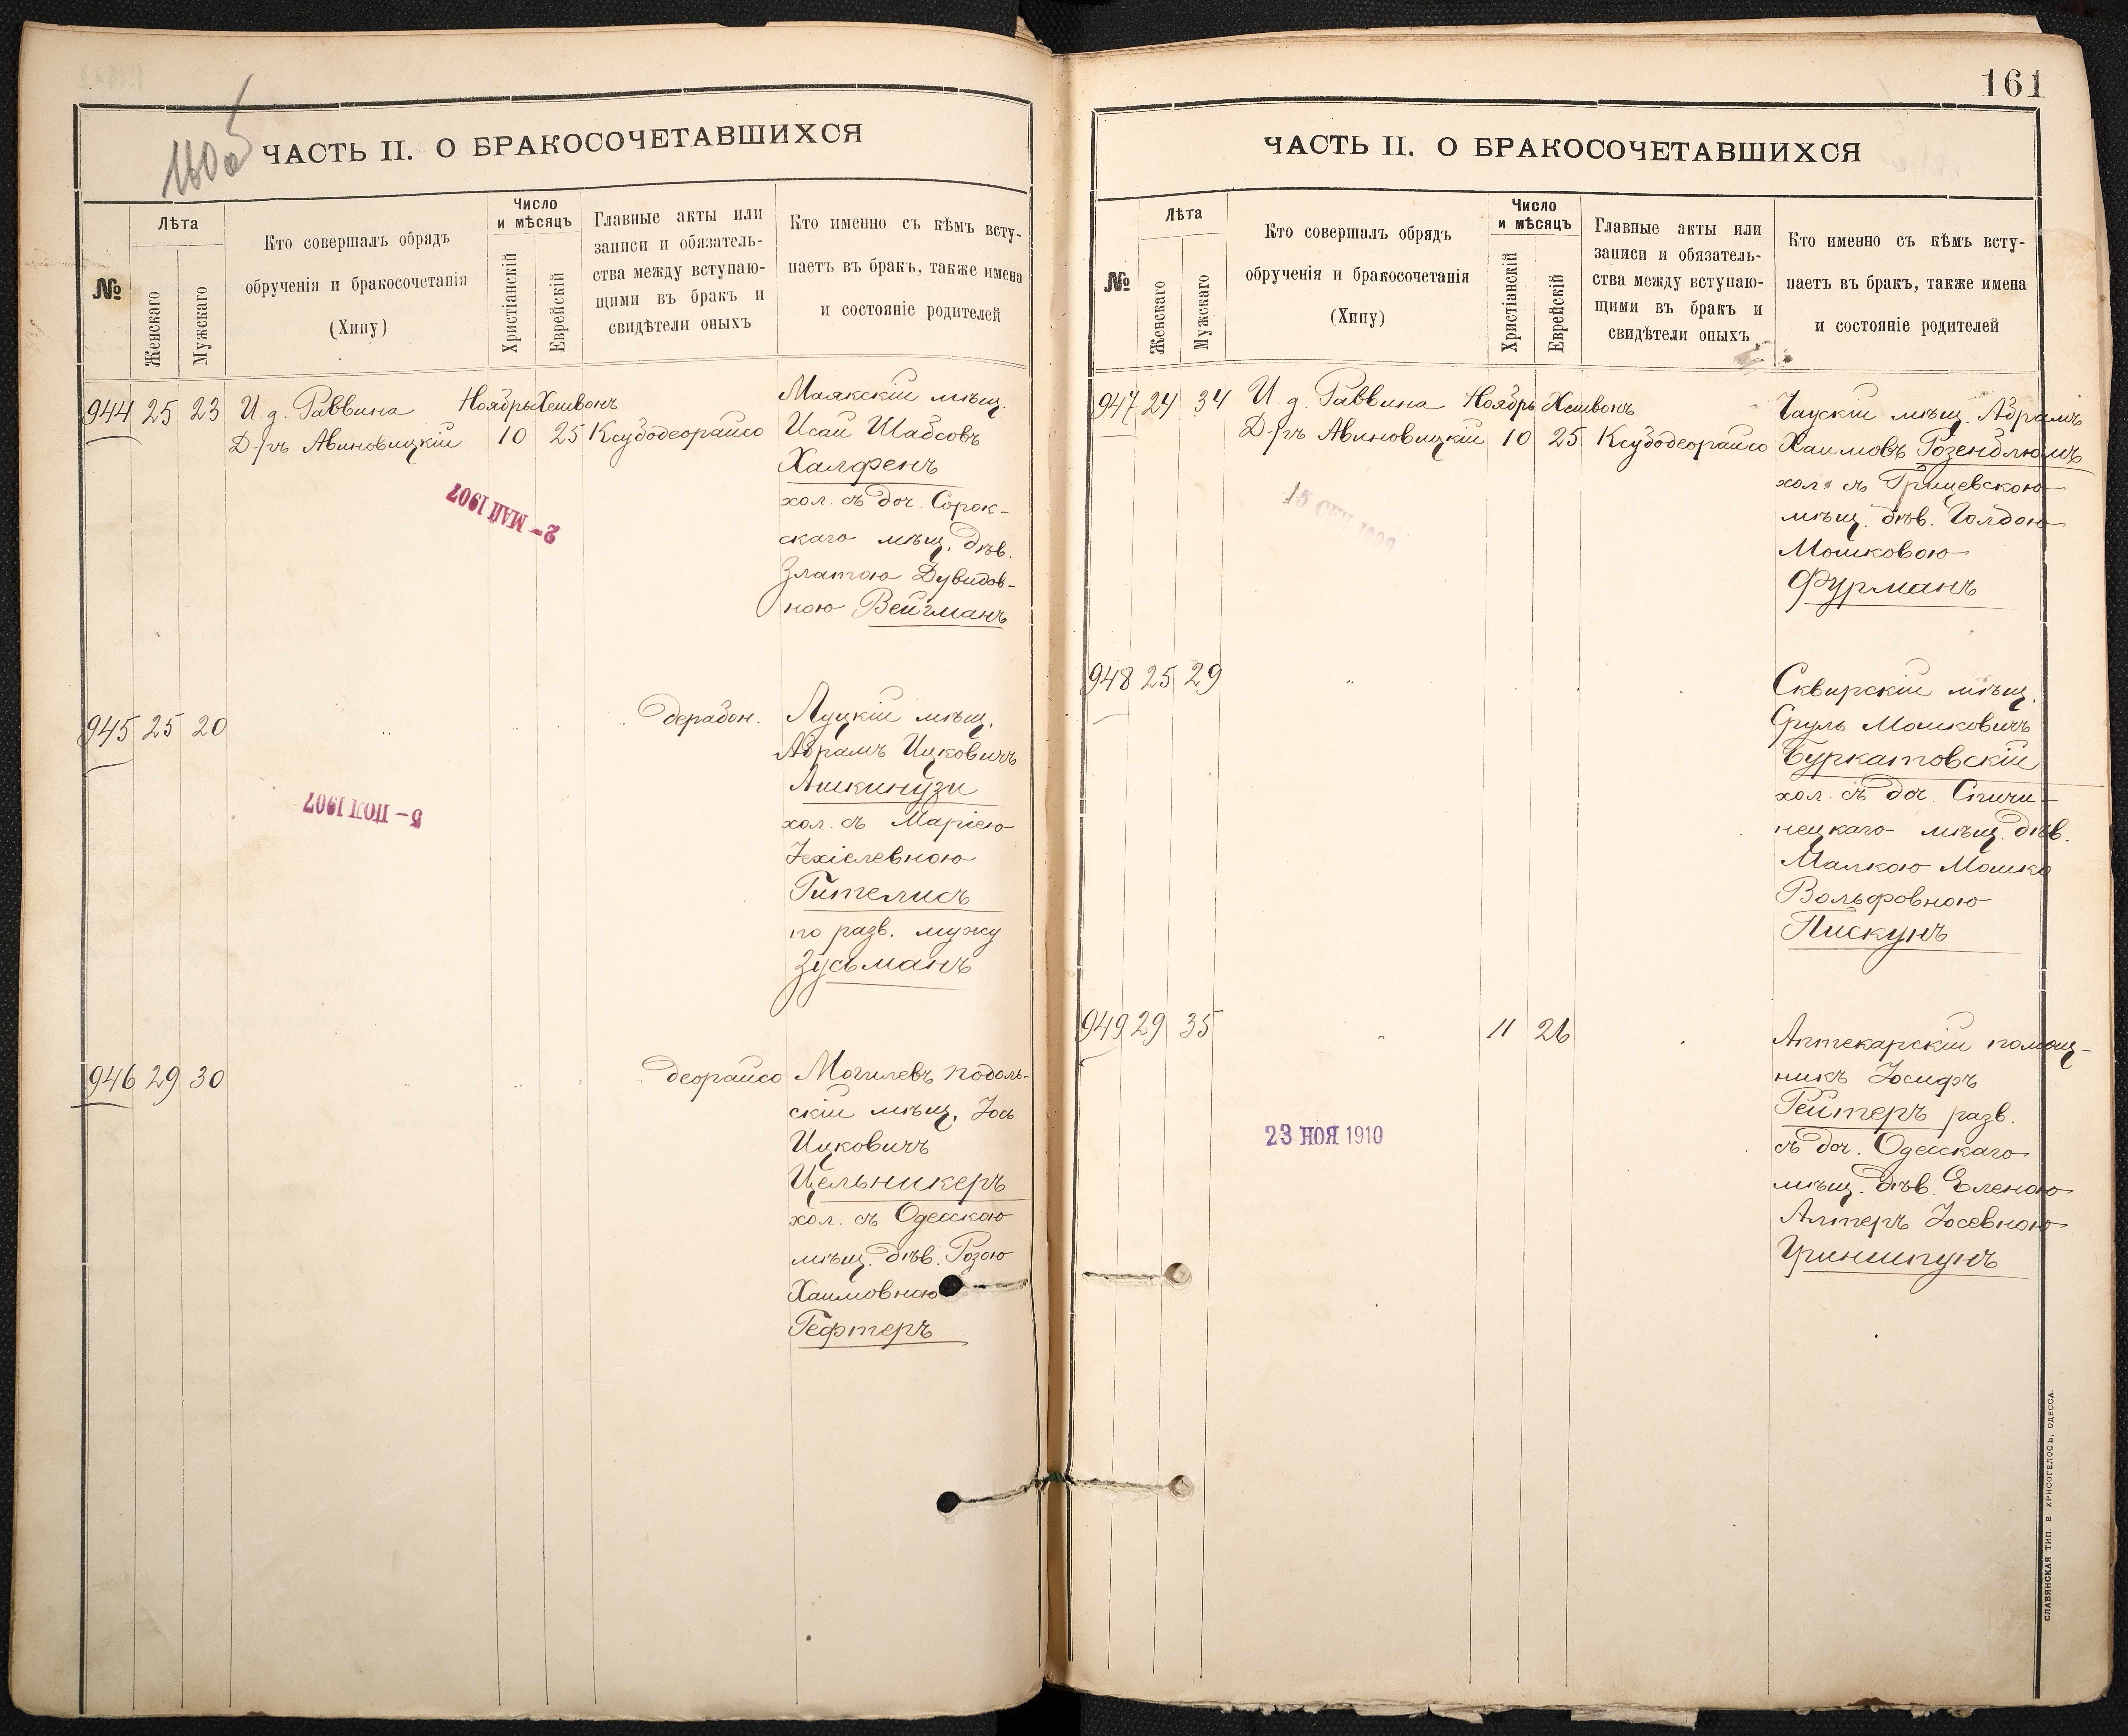 160 об
ЧАСТЬ II. О БРАКОСОЧЕТАВШИХСЯ
№
Лѣта
Женскаго
Мужскаго
Кто совершалъ обрядъ
обрученія и бракосочетанія
(Хипу)
Число
и мѣсяцъ
Христіанскій
Еврейскій
Главные акты или
записи и обязатель-
ства между вступаю-
щими въ бракъ и
свидѣтели оныхъ
Кто именно съ кѣмъ всту-
паетъ въ бракъ, также имена
и состояніе родителей
944 25 23 И. д. Раввина Ноябрь Хешвонъ
Д-ръ Авиновицкій 10 25 Ксубодеорайсо
Маякскій мѣщ.
Исай Шабсовъ
Халфенъ
хол. съ доч. Сорок-
скаго мѣщ. дѣв.
Златою Дувидов-
ною Вейгманъ
2- МАЙ 1907
945 25 20 " " " дерабон.
Луцкій мѣщ.
Абрамъ Ицковичъ
Ашкинузи
хол. съ Маріею
Іехіелевною
Гителисъ
по разв. мужу
Зусьманъ
5- ІЮЛ 1907
946 29 30 " " " деорайсо
Могилевъ Подоль-
скій мѣщ. Іось
Ицковичъ
Цельникеръ
хол. съ Одесскою
мѣщ. дѣв. Розою
Хаимовною
Гефтеръ
161
ЧАСТЬ II. О БРАКОСОЧЕТАВШИХСЯ
№
Лѣта
Женскаго
Мужскаго
Кто совершалъ обрядъ
обрученія и бракосочетанія
(Хипу)
Число
и мѣсяцъ
Христіанскій
Еврейскій
Главные акты или
записи и обязатель-
ства между вступаю-
щими въ бракъ и
свидѣтели оныхъ
Кто именно съ кѣмъ всту-
паетъ въ бракъ, также имена
и состояніе родителей
947 24 34 И. д. Раввина Ноябрь Хешвонъ
Д-ръ Авиновицкій 10 25 Ксубодеорайсо
Чаускій мѣщ. Абрамъ
Хаимовъ Розенблюмъ
хол. съ Грицевскою
мѣщ. дѣв. Голдою
Мошковою
Фурманъ
15 СЕН
948 25 29 "
Сквирскій мѣщ.
Сруль Мошковичъ
Буркатовскій
хол. съ доч. Спичи-
нецкаго мѣщ. дѣв.
Малкою Мошко
Вольфовною
Пискунъ
949 29 35 " 11 26
Аптекарскій помощ-
никъ Іосифъ
Рейтеръ разв.
съ доч. Одесскаго
мѣщ. дѣв. Еленою
Алтеръ Іосевною
Гриншпунъ
23 НОЯ 1910
СЛАВЯНСКАЯ ТИП. Е. ХРИСОГЕЛОСЪ, ОДЕССА.